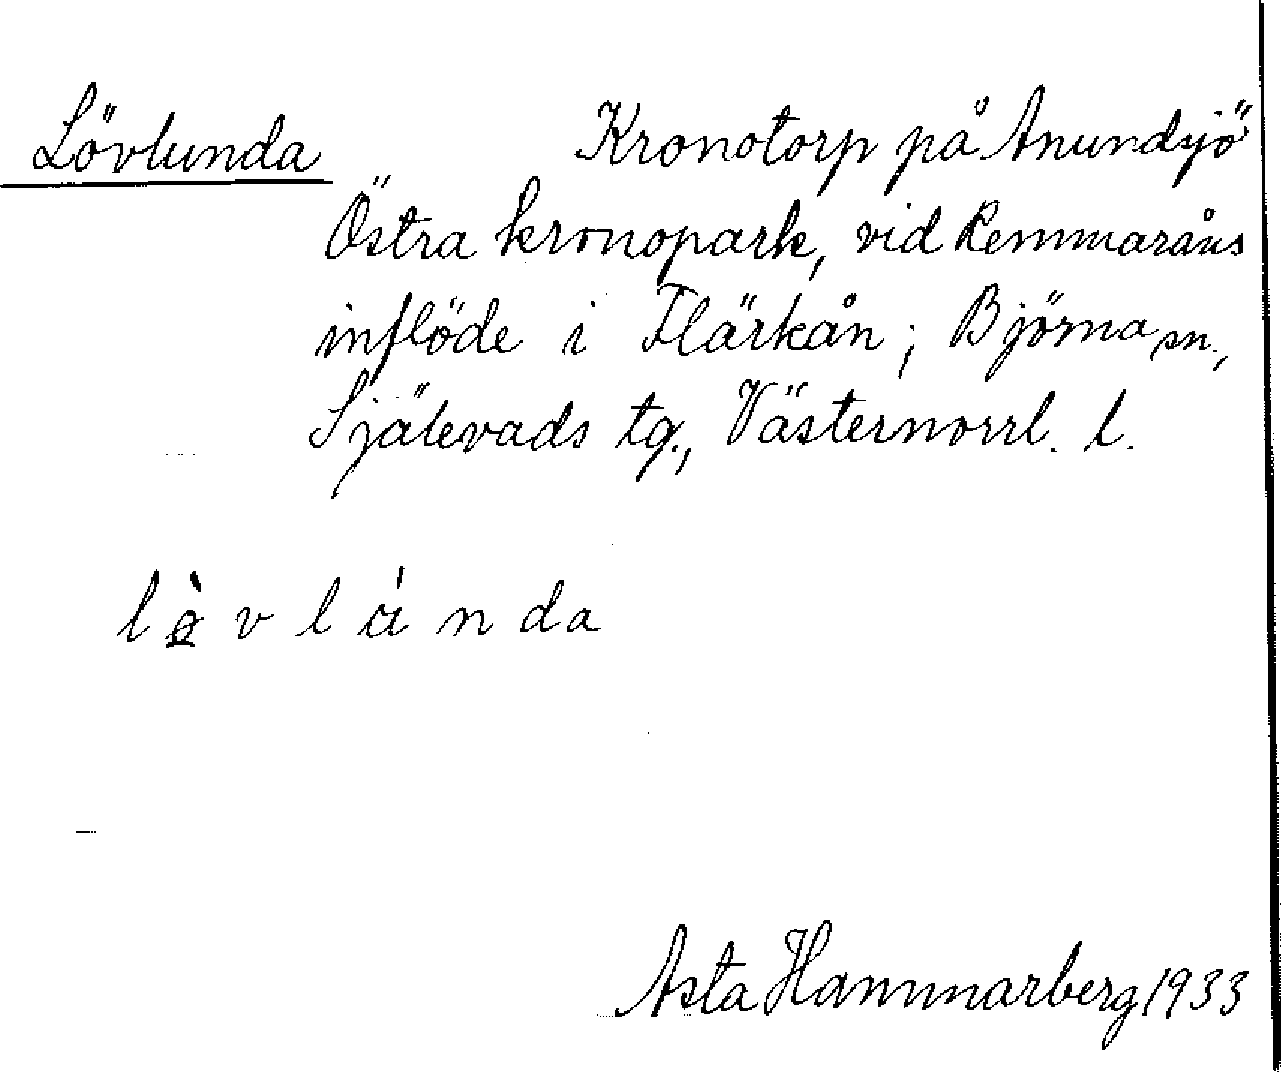 Lövlunda Kronotorp på Anundsjö
Östra kronopark, vid Remmaråns
inflöde i Flärkån; Björna sn.,
Själevads tg., Västernorrl. l.
lə̀vlúnda
Asta Hammarberg 1933